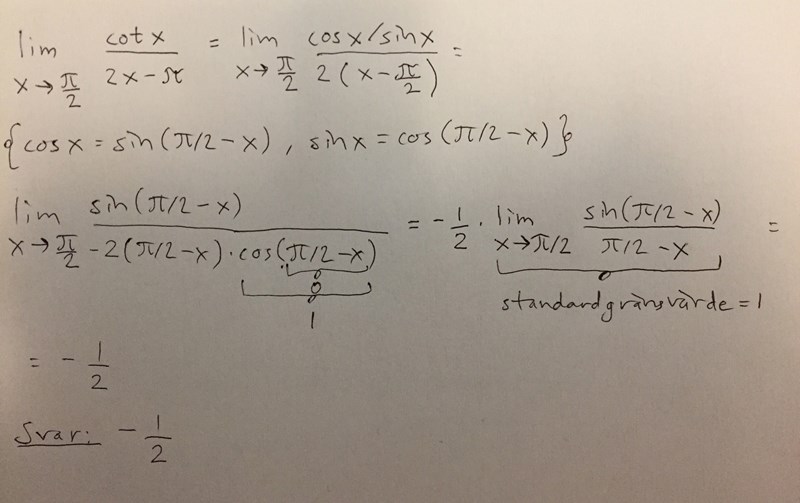 lim x→π/2 cot x / (2x-π) = lim x→π/2 (cos x/sin x) / (2(x-π/2)) =
{cos x = sin(π/2-x), sin x = cos(π/2-x)}
lim x→π/2 sin(π/2-x) / (-2(π/2-x)·cos(π/2-x)) = -1/2 · lim x→π/2 sin(π/2-x) / (π/2-x) =
0
1
standardgränsvärde = 1
= -1/2
Svar: -1/2